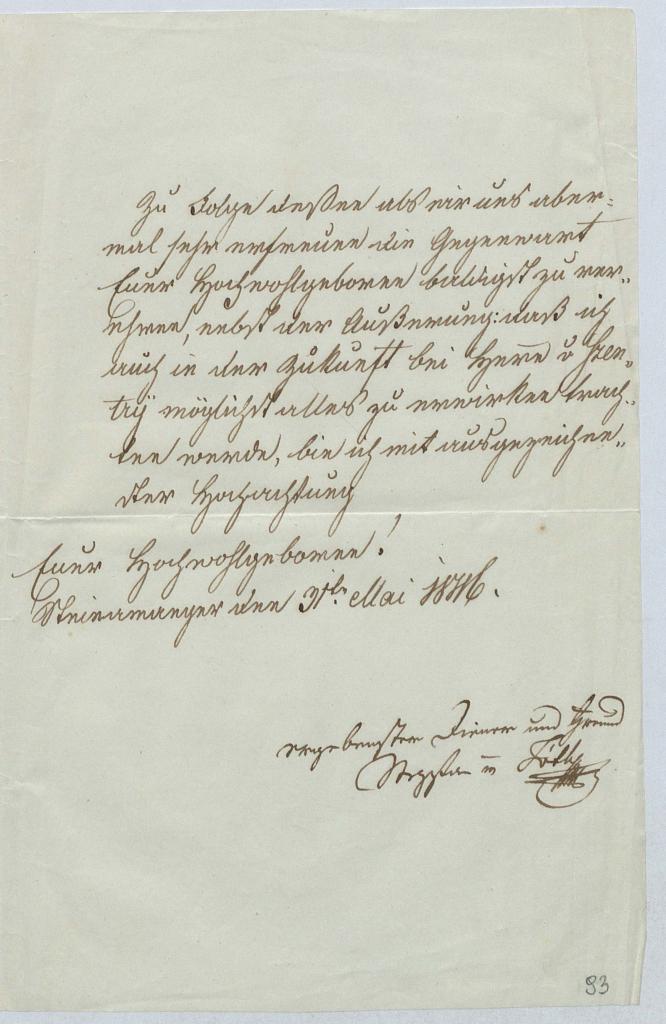 Zu Folge dessen als wir uns aber-
mal sehr erfreuen die Gegenwart
Euer Hochwohlgeboren baldigst zu ver-
ehren, nebst der Äußerung: daß ich
auch in der Zukunft bei Herrn v Szen-
tzÿ möglichst alles zu erwirken trach-
ten werde, bin ich mit ausgezeichne-
ter Hochachtung
Euer Hochwohlgeboren!
Steinamanger den 31ten Mai 1846.
ergebenster Diener und Freund
Stephan v Tóth
93